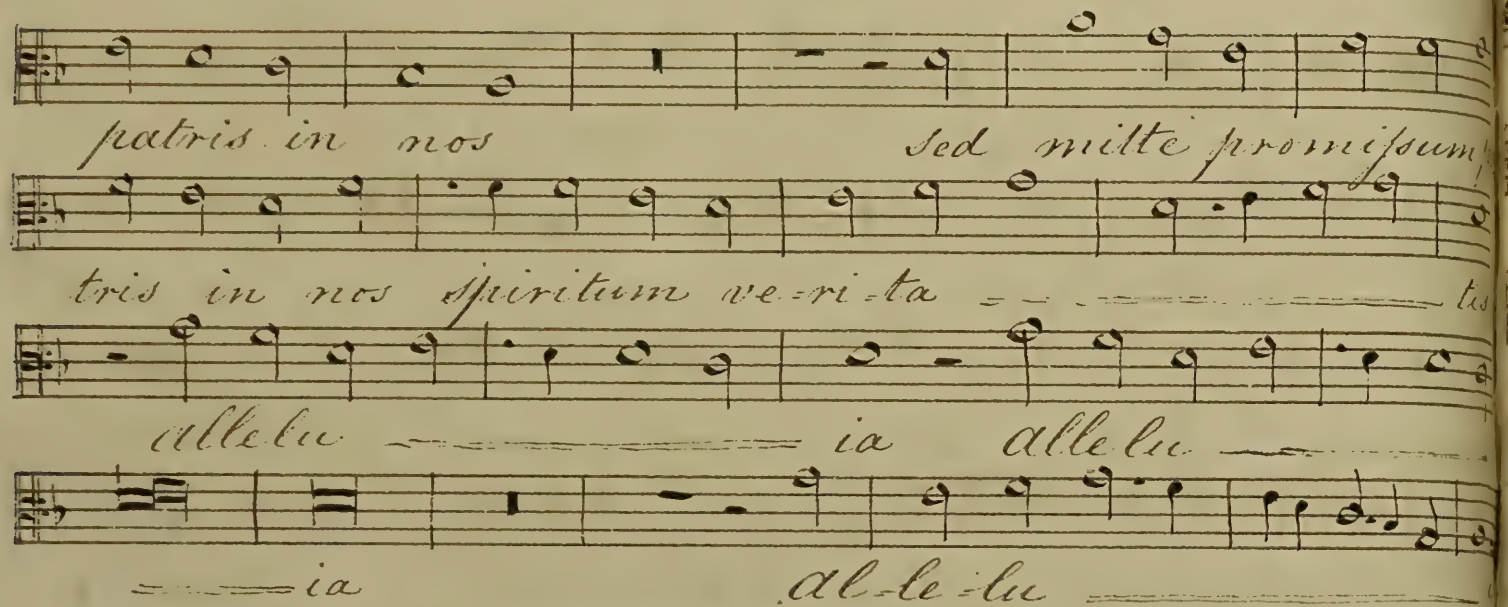 patris in nos sed mitte promiſsum
tris in nos spiritum ve-ri-ta - tis
allelu ia allelu
ia al-le-lu